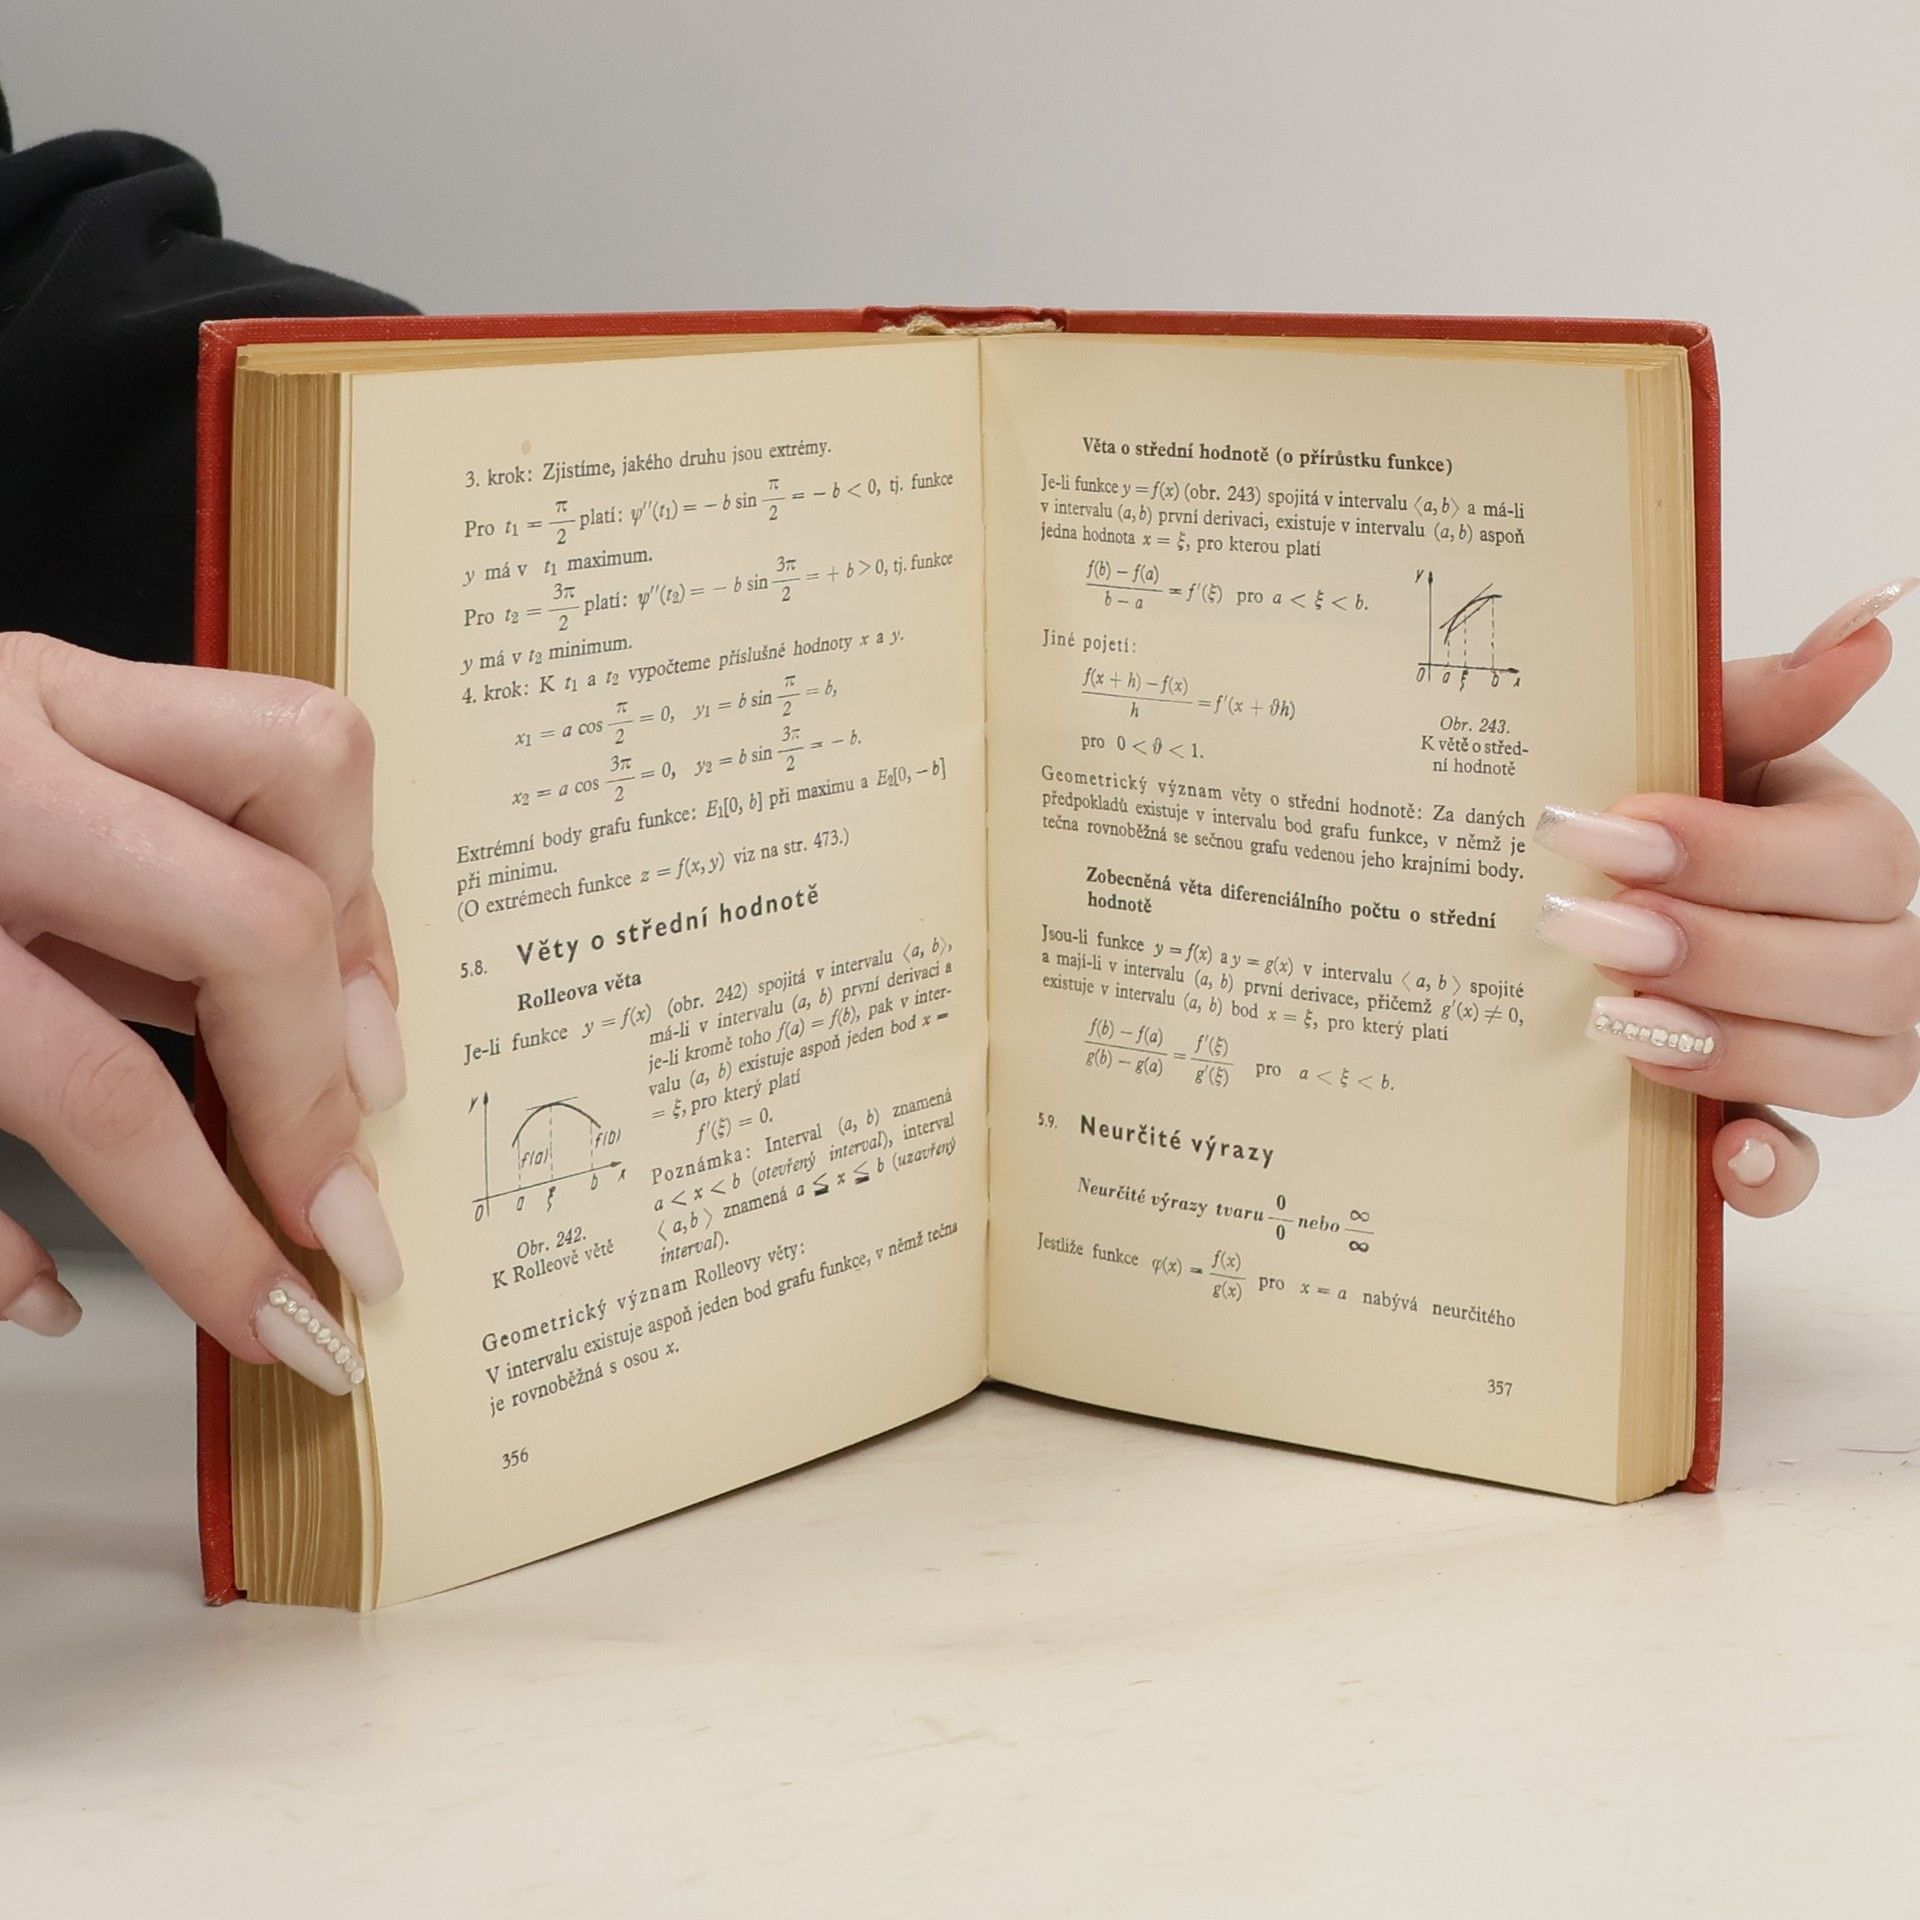 3. krok: Zjistíme, jakého druhu jsou extrémy.
Pro t₁ = π/2 platí: ψ''(t₁) = − b sin π/2 = − b < 0, tj. funkce
y má v t₁ maximum.
Pro t₂ = 3π/2 platí: ψ''(t₂) = − b sin 3π/2 = + b > 0, tj. funkce
y má v t₂ minimum.
4. krok: K t₁ a t₂ vypočteme příslušné hodnoty x a y.
x₁ = a cos π/2 = 0, y₁ = b sin π/2 = b,
x₂ = a cos 3π/2 = 0, y₂ = b sin 3π/2 = − b.
Extrémní body grafu funkce: E₁[0, b] při maximu a E₂[0, − b]
při minimu.
(O extrémech funkce z = f(x, y) viz na str. 473.)
5.8. Věty o střední hodnotě
Rolleova věta
Je-li funkce y = f(x) (obr. 242) spojitá v intervalu ⟨a, b⟩,
má-li v intervalu (a, b) první derivaci a
je-li kromě toho f(a) = f(b), pak v inter-
valu (a, b) existuje aspoň jeden bod x =
= ξ, pro který platí
f'(ξ) = 0.
Poznámka: Interval (a, b) znamená
a < x < b (otevřený interval), interval
⟨ a, b ⟩ znamená a ≦ x ≦ b (uzavřený
interval).
y
f(a)
f(b)
0 a ξ b x
Obr. 242.
K Rolleově větě
Geometrický význam Rolleovy věty:
V intervalu existuje aspoň jeden bod grafu funkce, v němž tečna
je rovnoběžná s osou x.
356
Věta o střední hodnotě (o přírůstku funkce)
Je-li funkce y = f(x) (obr. 243) spojitá v intervalu ⟨a, b⟩ a má-li
v intervalu (a, b) první derivaci, existuje v intervalu (a, b) aspoň
jedna hodnota x = ξ, pro kterou platí
f(b) − f(a) / b − a = f'(ξ) pro a < ξ < b.
Jiné pojetí:
f(x + h) − f(x) / h = f'(x + ϑh)
pro 0 < ϑ < 1.
y
0 a ξ b x
Obr. 243.
K větě o střed-
ní hodnotě
Geometrický význam věty o střední hodnotě: Za daných
předpokladů existuje v intervalu bod grafu funkce, v němž je
tečna rovnoběžná se sečnou grafu vedenou jeho krajními body.
Zobecněná věta diferenciálního počtu o střední
hodnotě
Jsou-li funkce y = f(x) a y = g(x) v intervalu ⟨ a, b ⟩ spojité
a mají-li v intervalu (a, b) první derivace, přičemž g'(x) ≠ 0,
existuje v intervalu (a, b) bod x = ξ, pro který platí
f(b) − f(a) / g(b) − g(a) = f'(ξ) / g'(ξ) pro a < ξ < b.
5.9. Neurčité výrazy
Neurčité výrazy tvaru 0/0 nebo ∞/∞
Jestliže funkce φ(x) = f(x)/g(x) pro x = a nabývá neurčitého
357